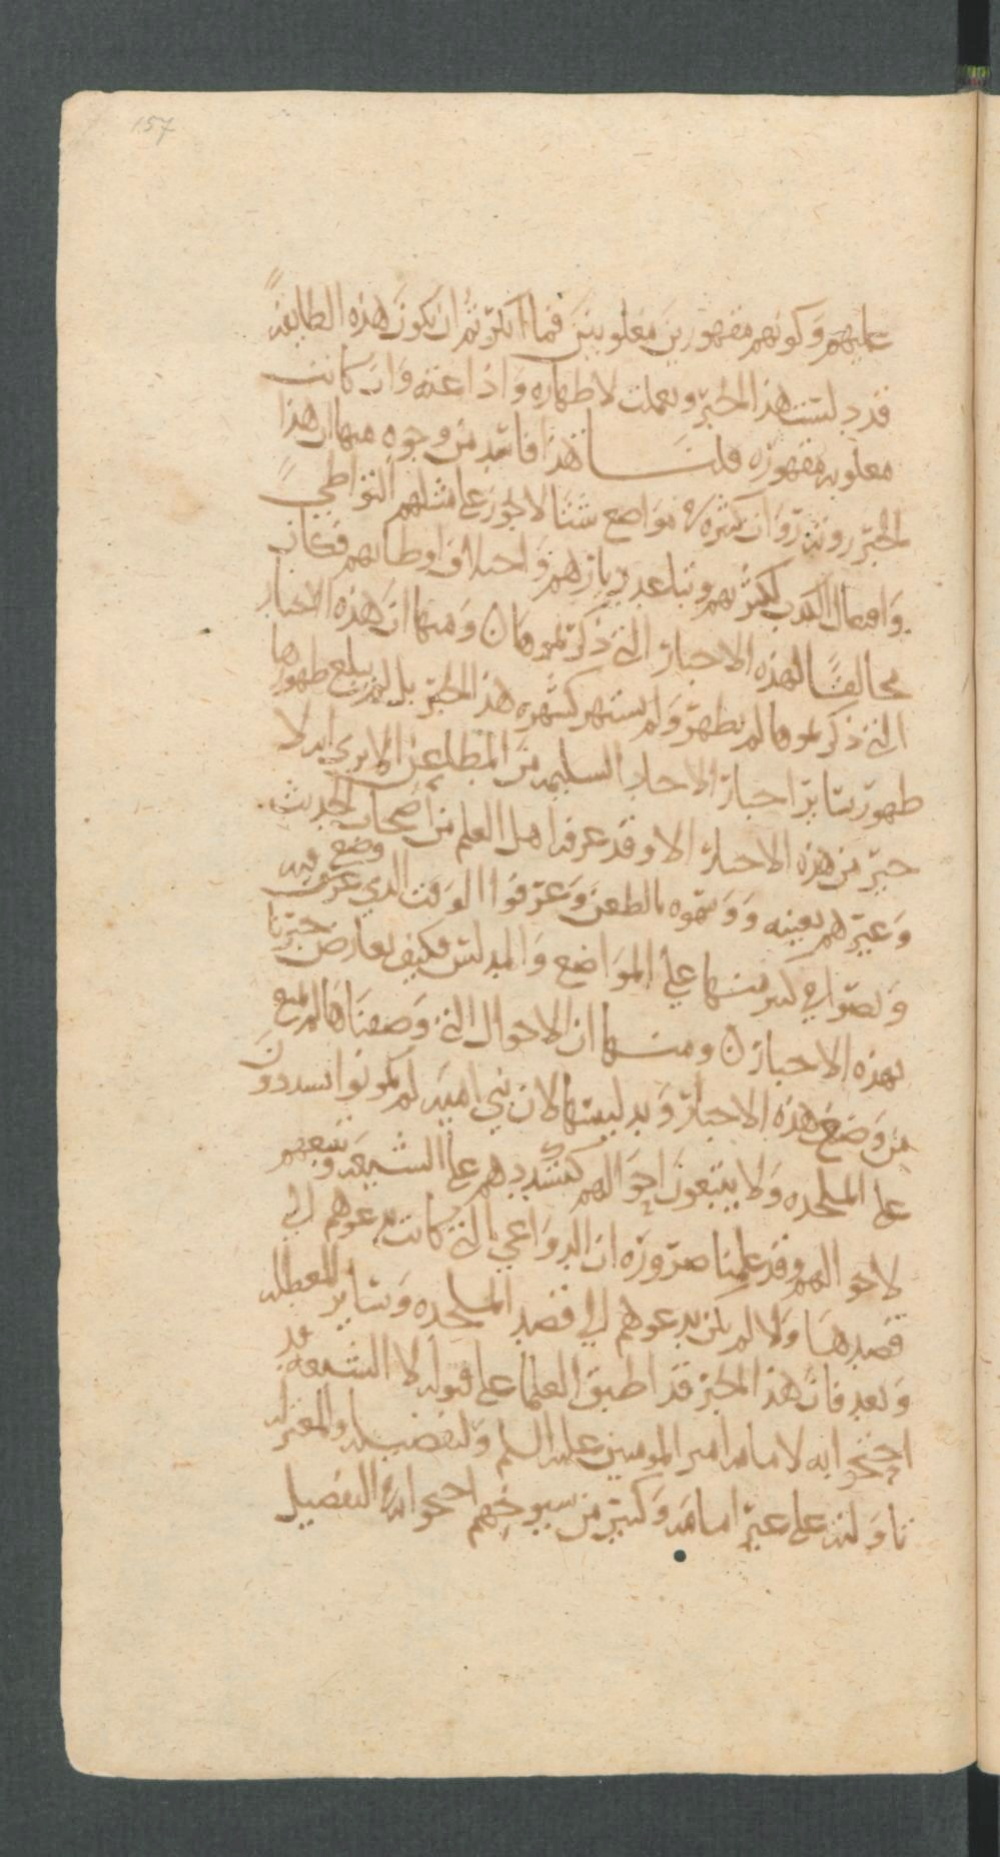 157
عليهم وكونهم مقهورين مغلوبين فما انكرتم ان يكون هذه الطايفة
قد دلست هذا الخبر وتعملت لاظهاره واذاعته وان كانت
مغلوبه مقهوره قلنا هذا فاسد من وجوه منها ان هذا
الخبر رونه رواة كثره في مواضع شتا لا يجوز على مثلهم التواطي
وافتعال الكذب لكثرتهم وتباعد ديارهم واختلاف اوطانهم فكان
مخالفا لهذه الاخبار التي ذكرتموها ومنها ان هذه الاخبار
التي ذكرتموها لم تظهر ولم تشتهر كشهره هذا الخبر بل لم يبلغ ظهورها
ظهور ساير اخبار الاحاد السليمه من المطاعن الا ترى انه لا
خبر من هذه الاخبار الا وقد عرفه اهل العلم من اصحاب الحديث
وغيرهم بعينه ووسموه بالطعن وعرفوا الوقت الذي وضع فيه
ونصوا في كثير منها على المواضع والمدلس فكيف تعارض خبرنا
بهذه الاخبار ومنها ان الاحوال التي وصفناها لم تمنع
من وضع هذه الاخبار وتدليسها لان بني اميه لم يكونوا يشددون
على الملحده ولا يتتبعون احوالهم كتشديدهم على الشيعه وتتبعهم
لاحوالهم وقد علمنا ضرورة ان الدواعي التي كانت تدعوهم الى
قصدها ولا لم يكن يدعوهم الى قصد الملحده وساير المعطله
وبعد فان هذا الخبر قد اطبق العلما على قبوله لان الشيعه قد
احتجوا به لامامه امير المومنين عليه السلم وتفضيله والمعتزله
تاولته على غير امامه وكثير من شيوخهم احتجوا به في التفضيل